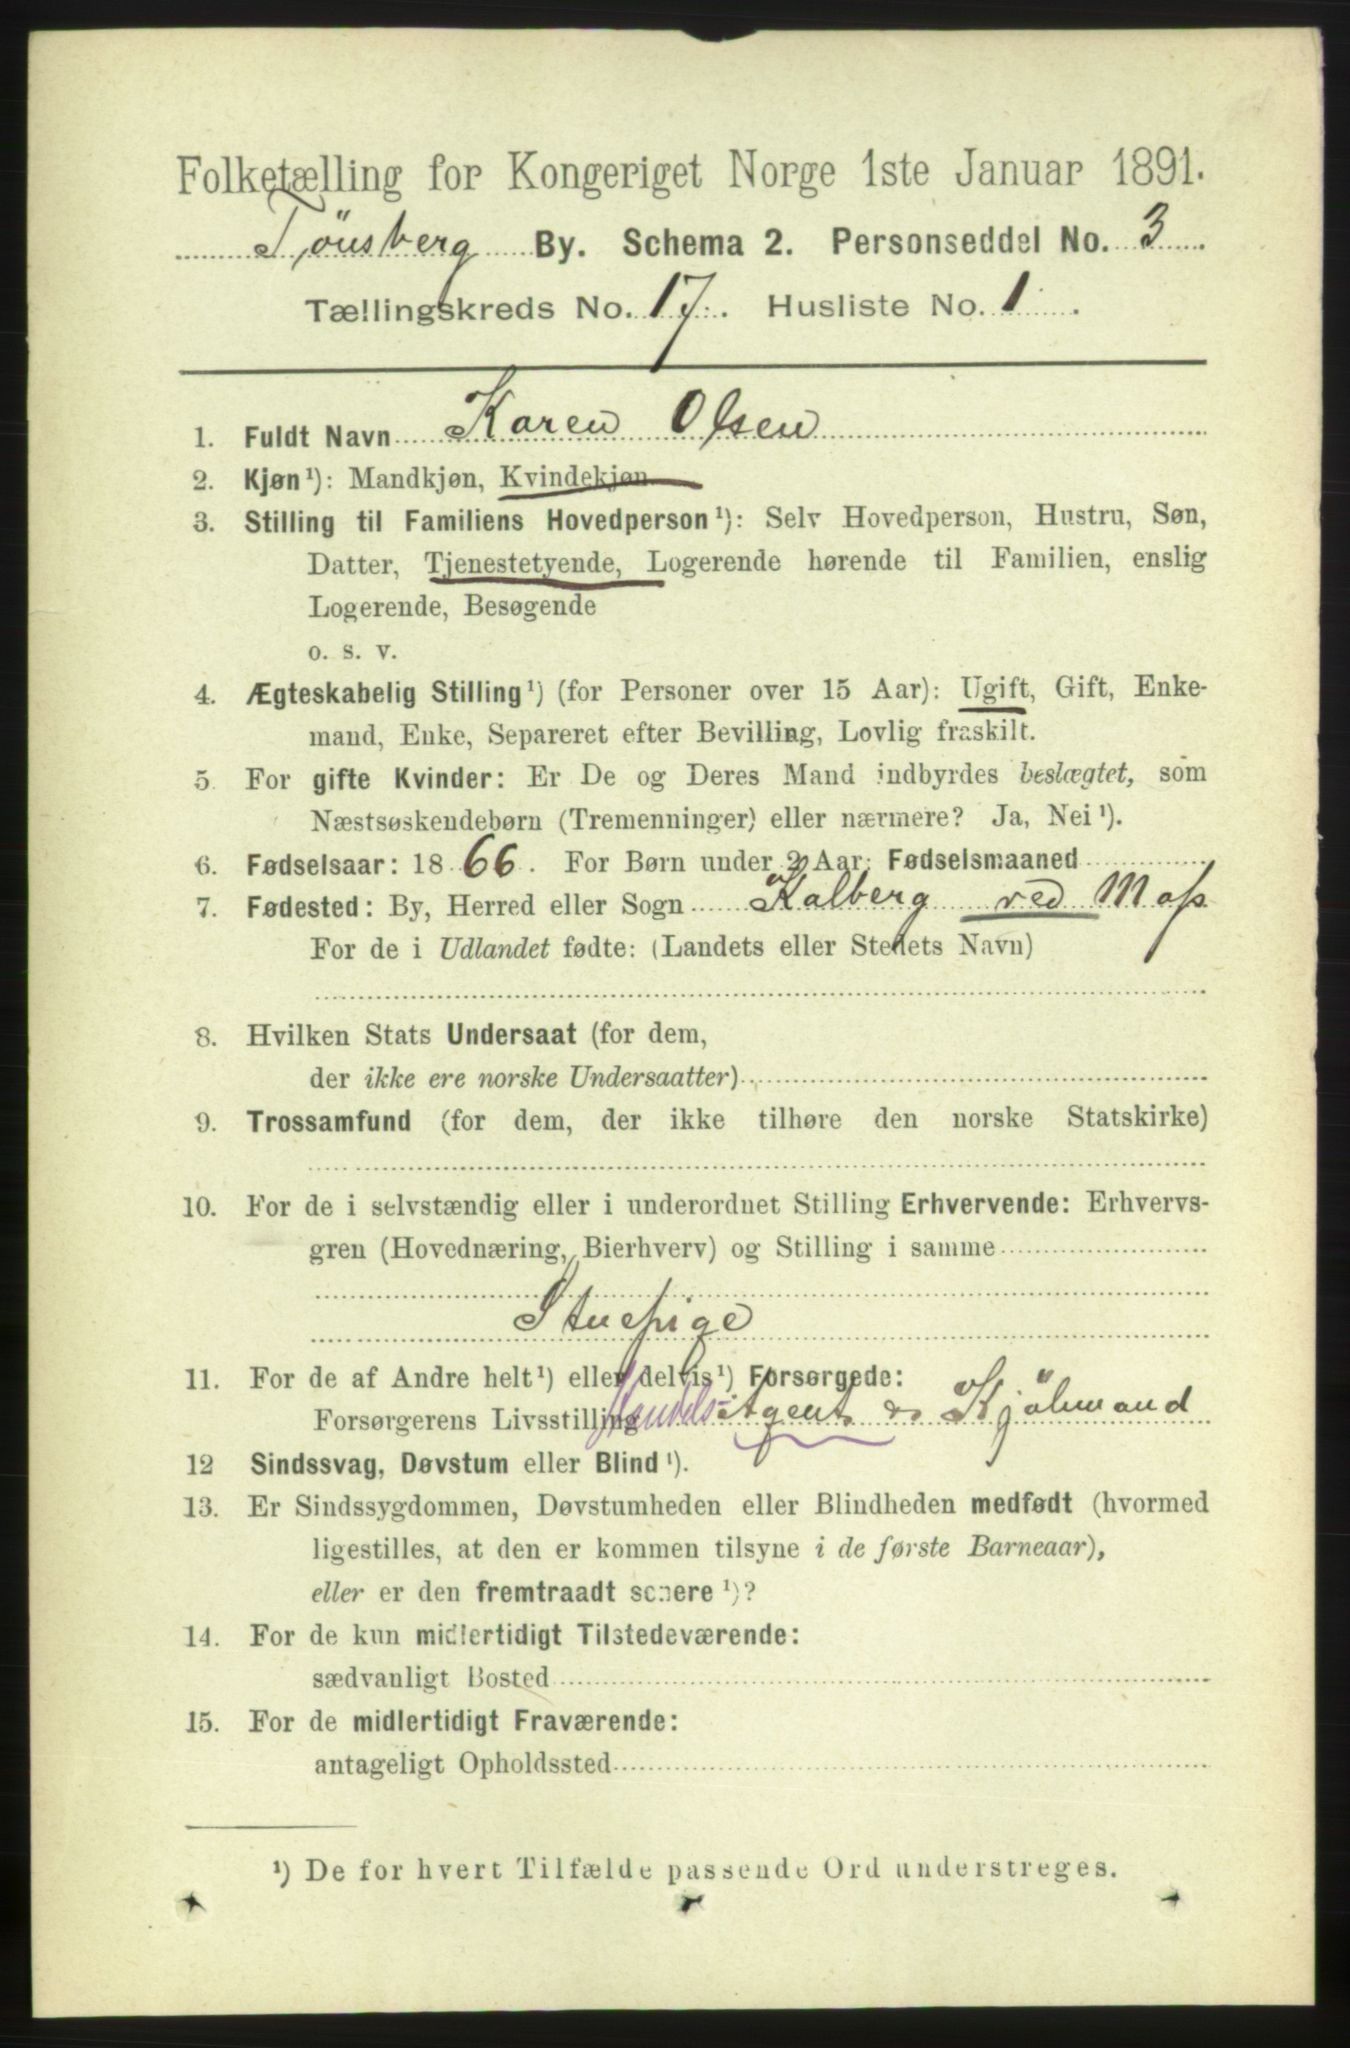 Folketælling for Kongeriget Norge 1ste Januar 1891.
Tönsberg By. Schema 2. Personseddel No. 3
Tællingskreds No. 17. Husliste No. 1.
1. Fuldt Navn Karen Olsen
2. Kjøn¹): Mandkjøn, Kvindekjøn
3. Stilling til Familiens Hovedperson¹): Selv Hovedperson, Hustru, Søn,
Datter, Tjenestetyende, Logerende hørende til Familien, enslig
Logerende, Besøgende
o. s. v.
4. Ægteskabelig Stilling¹) (for Personer over 15 Aar): Ugift, Gift, Enke-
mand, Enke, Separeret efter Bevilling, Lovlig fraskilt.
5. For gifte Kvinder: Er De og Deres Mand indbyrdes beslægtet, som
Næstsøskendebørn (Tremenninger) eller nærmere? Ja, Nei¹).
6. Fødselsaar: 1866. For Børn under 2 Aar: Fødselsmaaned
7. Fødested: By, Herred eller Sogn Kalberg ved Moss
For de i Udlandet fødte: (Landets eller Stedets Navn)
8. Hvilken Stats Undersaat (for dem,
der ikke ere norske Undersaatter)
9. Trossamfund (for dem, der ikke tilhøre den norske Statskirke)
10. For de i selvstændig eller i underordnet Stilling Erhvervende: Erhvervs-
gren (Hovednæring, Bierhverv) og Stilling i samme
Stuepige
11. For de af Andre helt¹) eller delvis¹) Forsørgede:
Forsørgerens Livsstilling Handels-Agent Kjölmand
12 Sindssvag, Døvstum eller Blind¹).
13. Er Sindssygdommen, Døvstumheden eller Blindheden medfødt (hvormed
ligestilles, at den er kommen tilsyne i de første Barneaar),
eller er den fremtraadt senere¹)?
14. For de kun midlertidigt Tilstedeværende:
sædvanligt Bosted
15. For de midlertidigt Fraværende:
antageligt Opholdssted
¹) De for hvert Tilfælde passende Ord understreges.